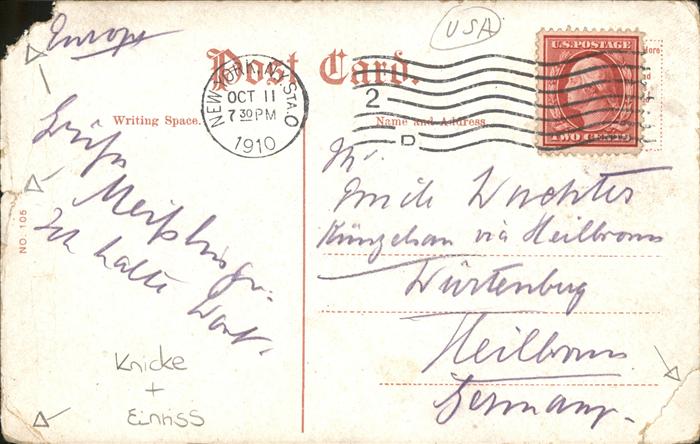 Europe
USA
Post Card.
U.S. POSTAGE
TWO CENTS
NEW YORK, N.Y. STA. O
OCT 11
7 30 PM
1910
2
D
Writing Space.
Name and Address
Mr.
Emil Wachter
Künzelsau via Heilbronn
Würtenberg
Heilbronn
Germany.
Ich halte Wort.
NO. 105
Knicke
+
Einriss